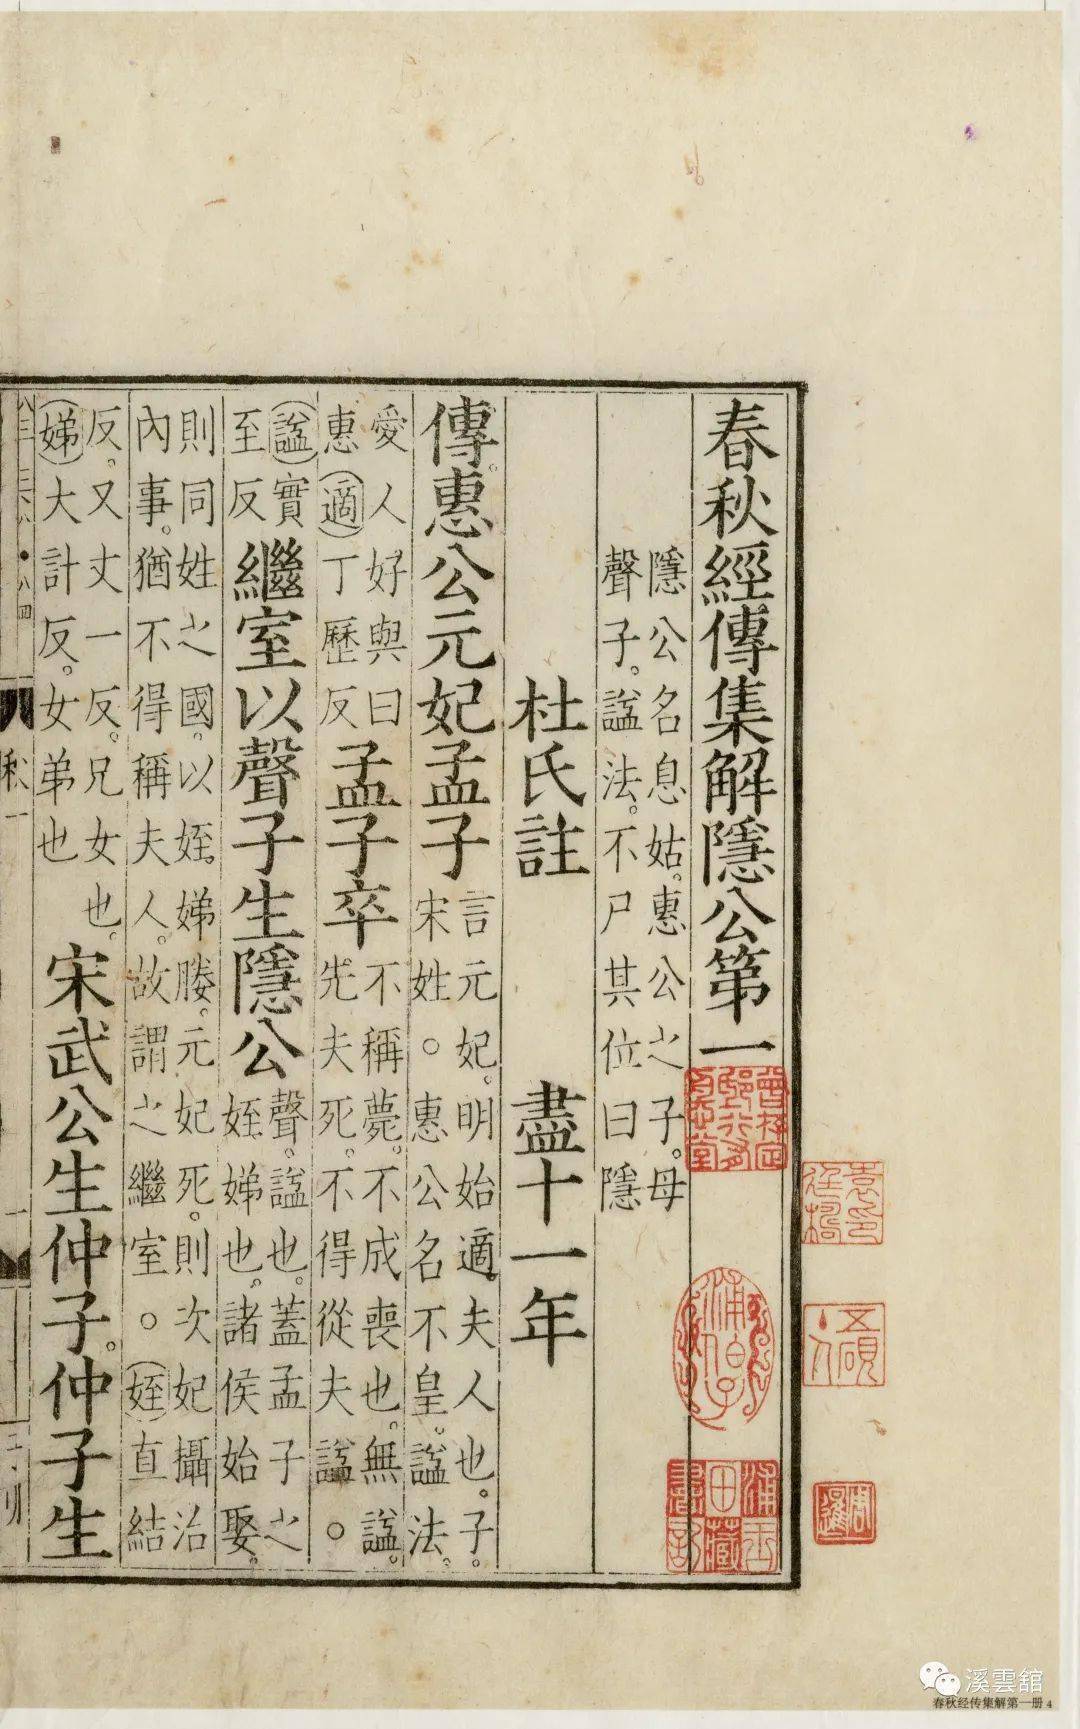 春秋經傳集解隱公第一
隱公名息姑。惠公之子。母
聲子。諡法。不尸其位曰隱
杜氏註　盡十一年
傳惠公元妃孟子
言元妃。明始適夫人也。子。
宋姓。○惠公名不皇。諡法。
愛人好與曰
惠(適)丁歷反
孟子卒
不稱薨。不成喪也。無諡。
先夫死。不得從夫諡。○
(諡)實
至反
繼室以聲子生隱公
聲。諡也。蓋孟子之
姪娣也。諸侯始娶。
則同姓之國。以姪。娣媵。元妃死。則次妃攝治
內事。猶不得稱夫人。故謂之繼室。○(姪)直結
反。又丈一反。兄女也。
(娣)大計反。女弟也
宋武公生仲子。仲子生
秋一
一
浦伯子
浦玉田藏書記
五硯
溪雲舘
春秋经传集解第一册 4